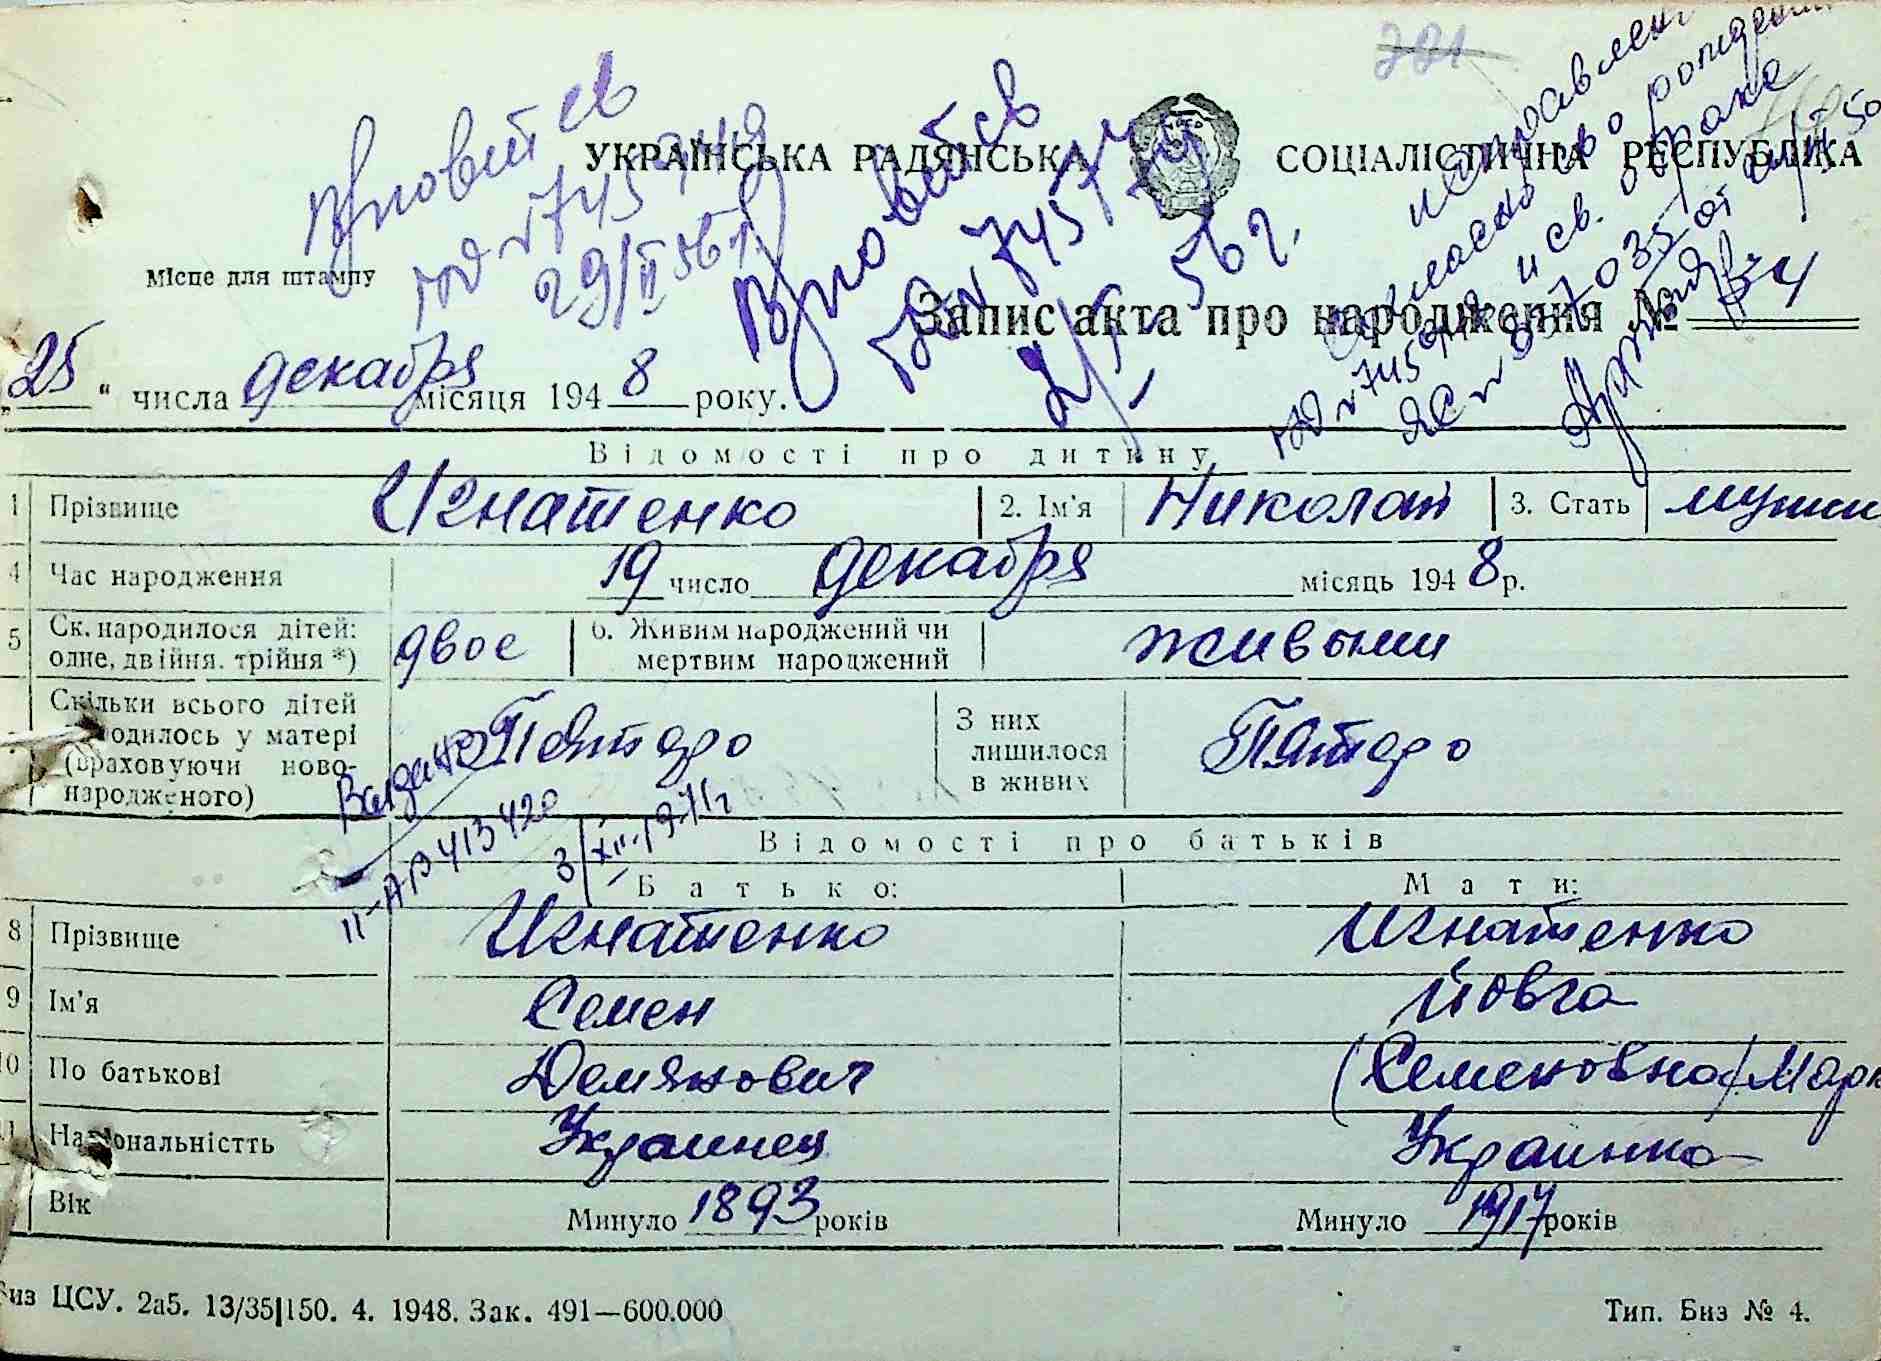 221
УКРАЇНСЬКА РАДЯНСЬКА СОЦІАЛІСТИЧНА РЕСПУБЛІКА
Місце для штампу
29/II 56 г.
56 г.
Запис акта про народження № 34
„25“ числа декабря місяця 1948 року.
Відомості про дитину
1 Прізвище Игнатенко 2. Ім'я Николай 3. Стать
4 Час народження 19 число декабря місяць 1948 р.
5 Ск. народилося дітей: одне, двійня. трійня *) двое 6. Живим народжений чи мертвим народжений живыми
Скільки всього дітей народилось у матері (враховуючи новонародженого) Пятеро З них лишилося в живих Пятеро
II-АР 413420
3/XII-1971г
Відомості про батьків
Батько: Мати:
8 Прізвище Игнатенко Игнатенко
9 Ім'я Семен Йовга
10 По батькові Демянович (Семеновна) Марк
11 Національністть Украинец Украинка
Вік Минуло 1893 років Минуло 1917 років
Биз ЦСУ. 2а5. 13/35|150. 4. 1948. Зак. 491—600.000 Тип. Биз № 4.